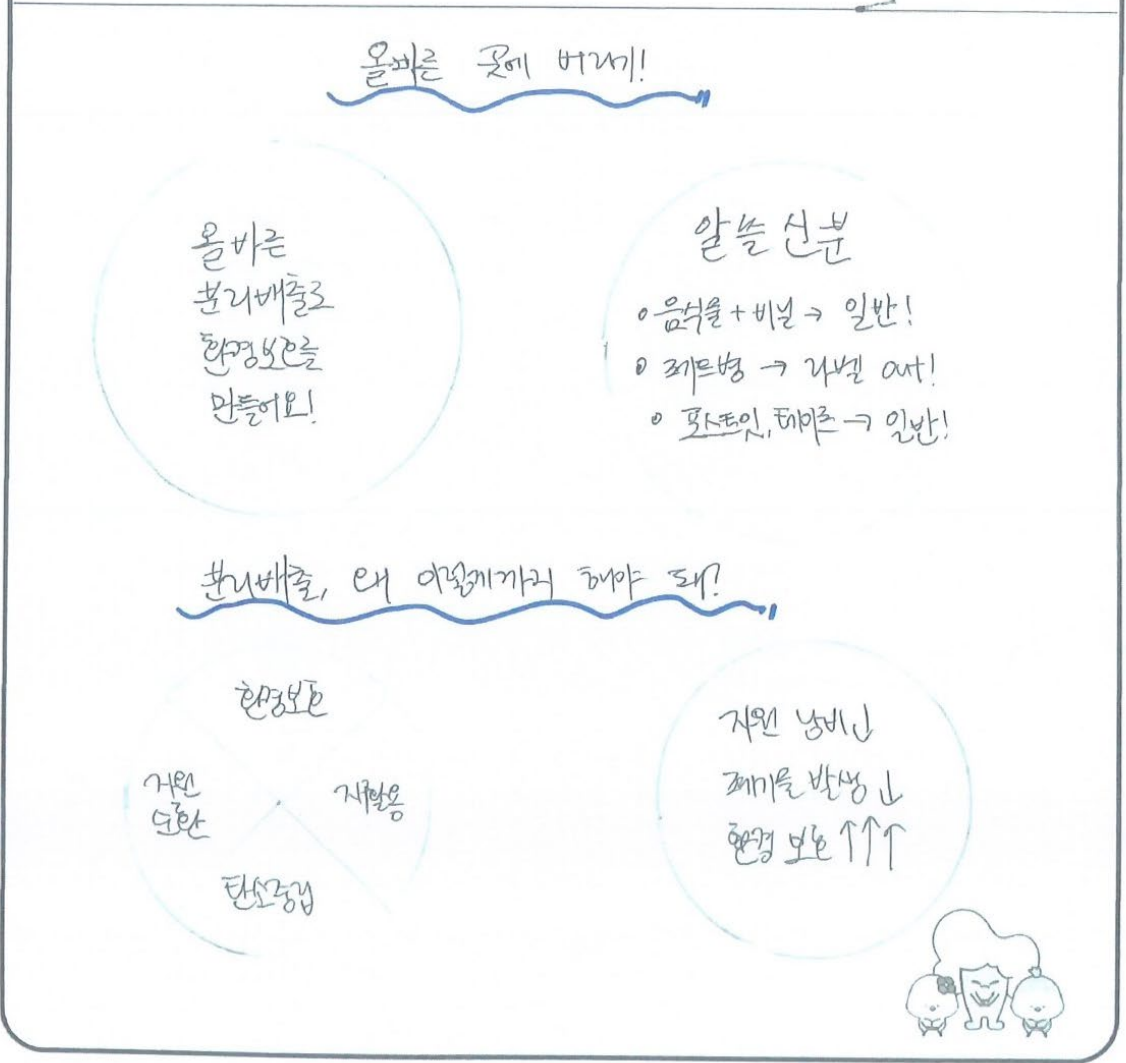 올바른 곳에 버리기!
올바른
분리배출로
환경보호를
만들어요!
알쓸신분
• 음식물 + 비닐 → 일반!
• 페트병 → 라벨 out!
• 포스트잇, 테이프 → 일반!
분리배출, 왜 이렇게까지 해야 돼?
환경보호
자원
순환
재활용
탄소중립
자원 낭비↓
폐기물 발생↓
환경 보호↑↑↑